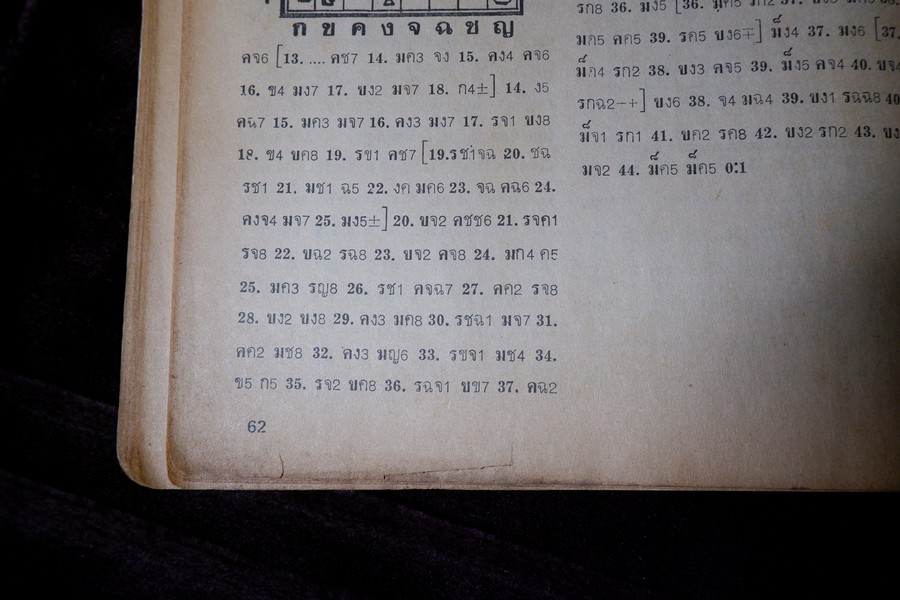 ก ข ค ง จ ฉ ช ญ
คจ6 [13. .... คช7 14. มค3 จง 15. คง4 คจ6
16. ข4 มง7 17. บง2 มจ7 18. ก4±] 14. ง5
คฉ7 15. มค3 มจ7 16. คง3 มง7 17. รจ1 บง8
18. ข4 บค8 19. รข1 คช7 [19.รช1จฉ 20. ชฉ
รช1 21. มช1 ฉ5 22. งค มค6 23. จฉ คฉ6 24.
คงจ4 มจ7 25. มง5±] 20. บจ2 คชช6 21. รจค1
รจ8 22. บฉ2 รฉ8 23. บจ2 คจ8 24. มก4 ค5
25. มค3 รญ8 26. รช1 คจฉ7 27. คค2 รจ8
28. บง2 บง8 29. คง3 มค8 30. รชฉ1 มจ7 31.
คค2 มช8 32. คง3 มญ6 33. รขจ1 มช4 34.
ข5 ก5 35. รจ2 บค8 36. รฉจ1 บข7 37. คฉ2
62
รก8 36. มง5 [36.
มก5 คค5 39. รค5 บง6∓] ม็ง4 37. มง6 [37.
ม็ก4 รก2 38. บง3 คจ5 39. ม็ง5 คจ4 40. บจ4
รกฉ2−+] บง6 38. จ4 มฉ4 39. บง1 รฉฉ8 40
ม็จ1 รก1 41. บค2 รค8 42. บง2 รก2 43. บง
มจ2 44. ม็ค5 ม็ค5 0:1